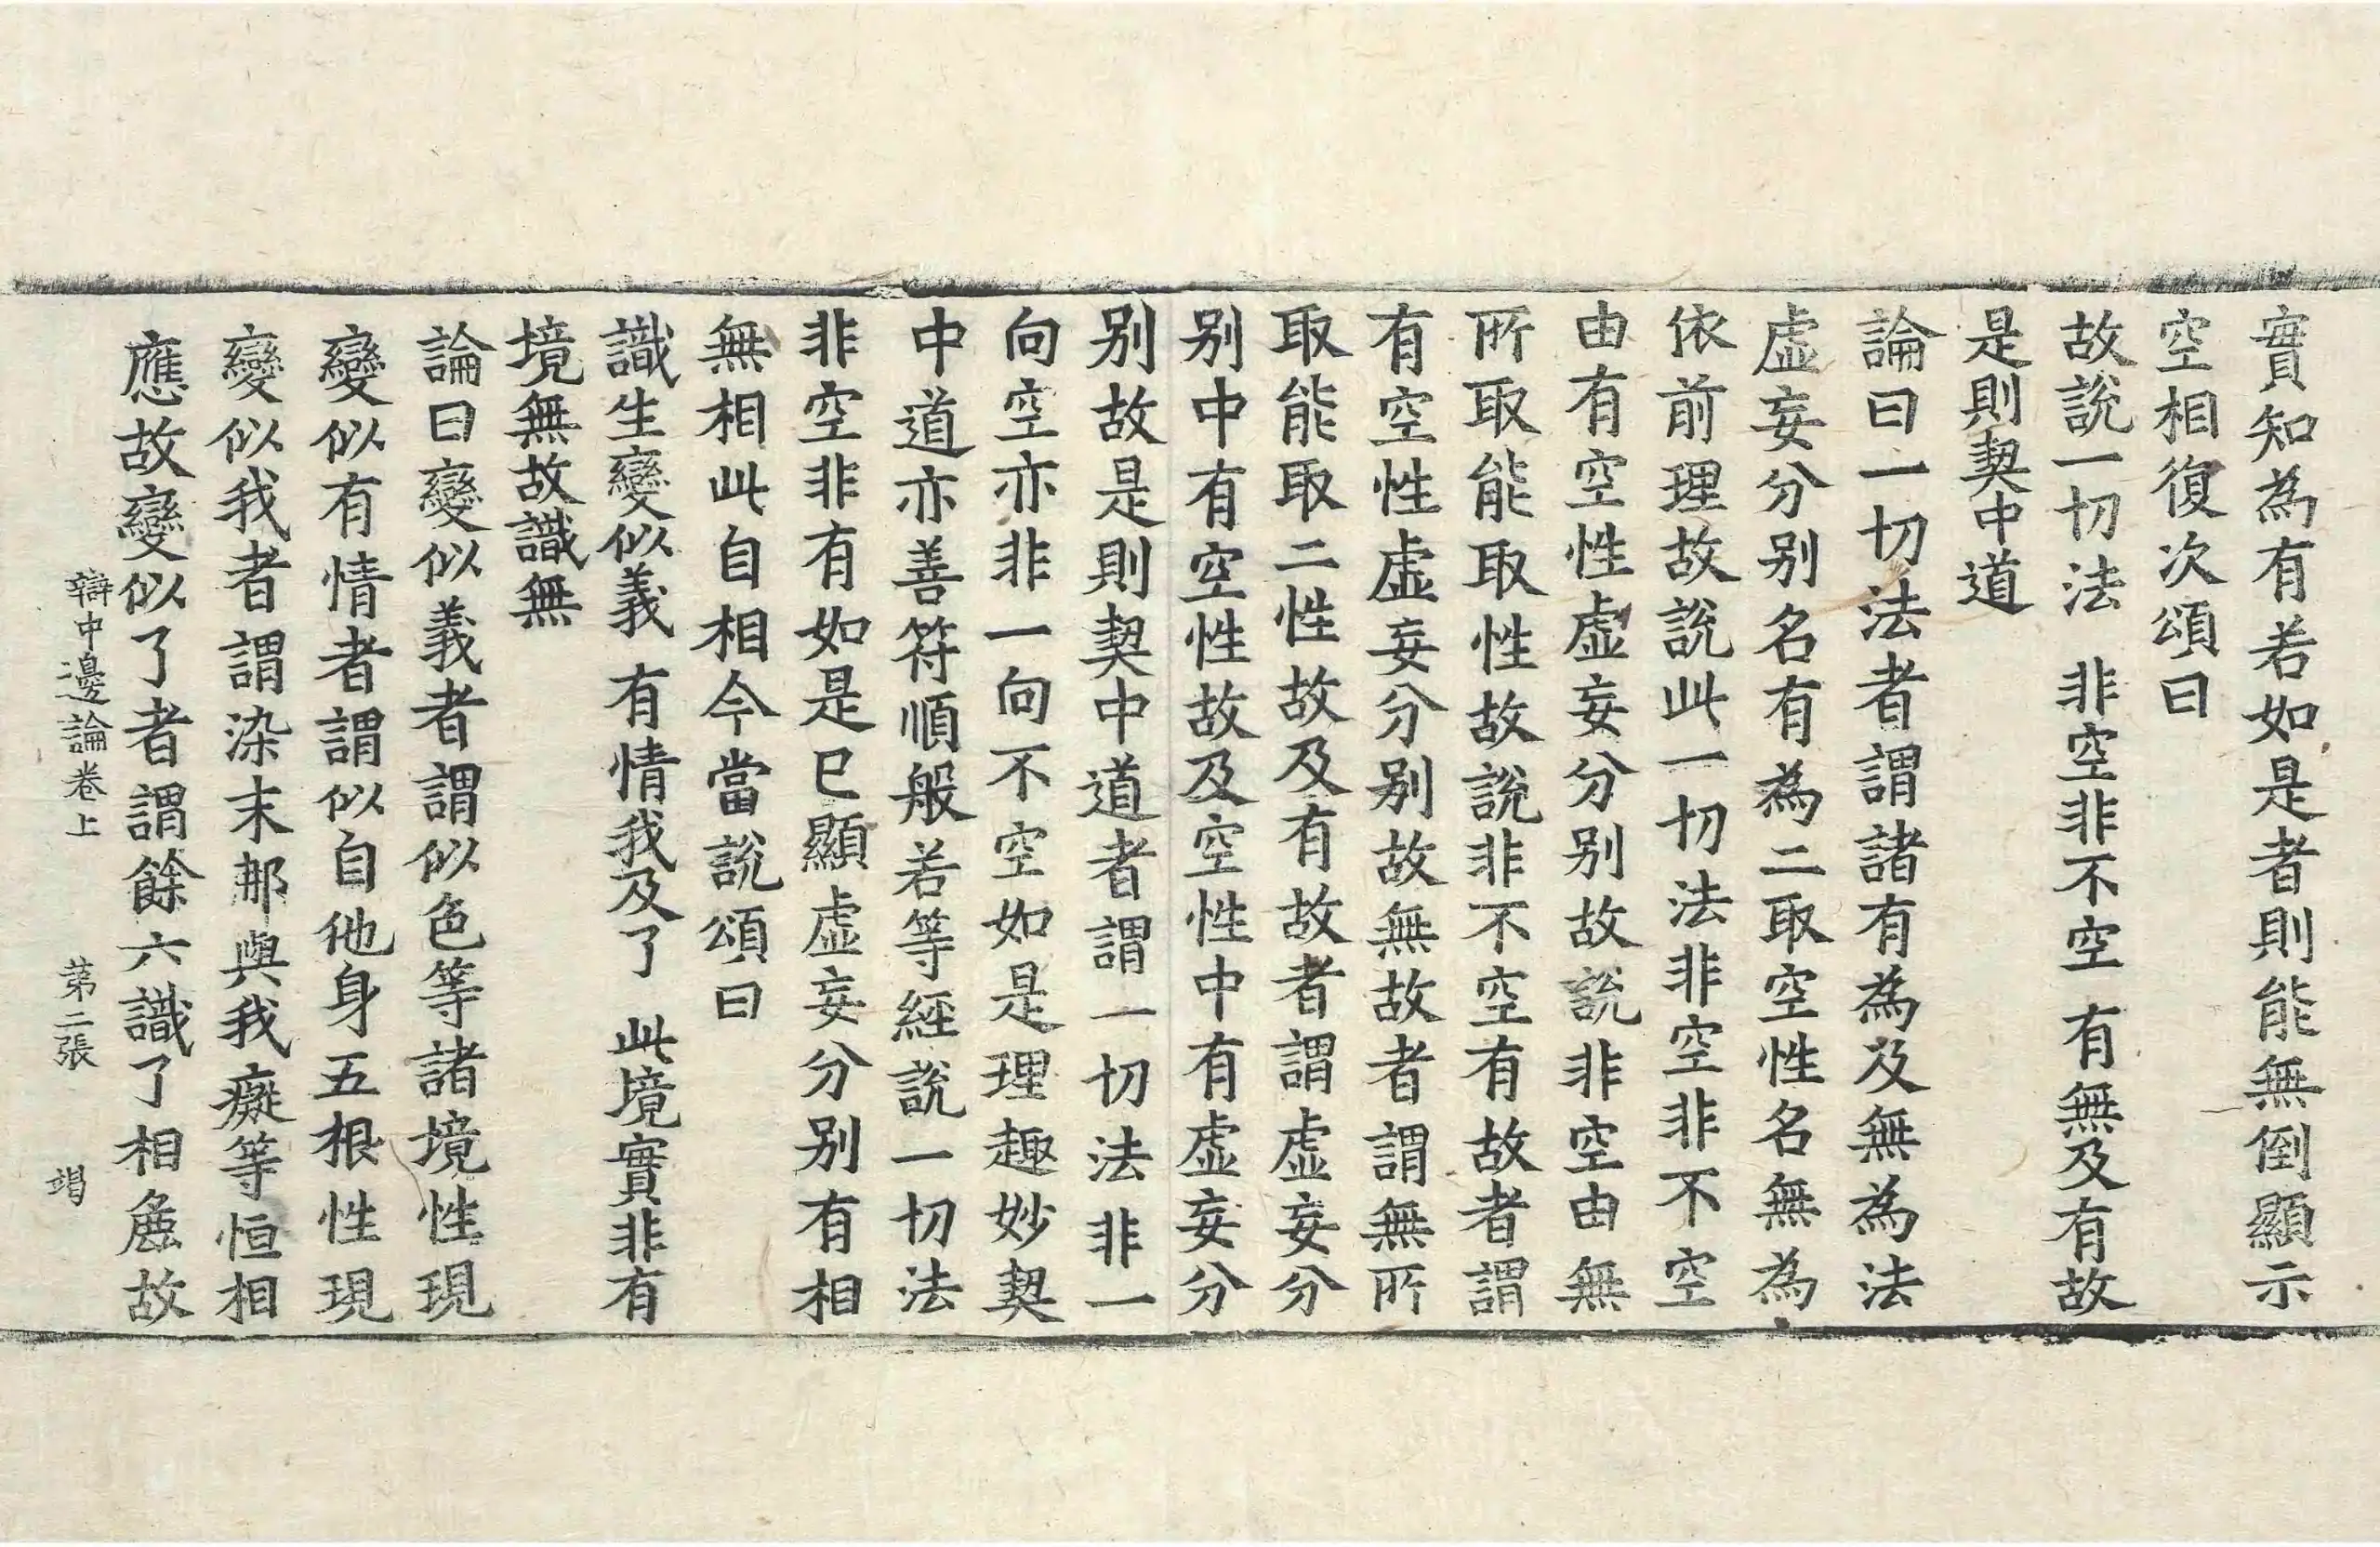 實知為有若如是者則能無倒顯示
空相復次頌曰
故說一切法　非空非不空　有無及有故
是則契中道
論曰一切法者謂諸有為及無為法
虛妄分別名有為二取空性名無為
依前理故說此一切法非空非不空
由有空性虛妄分別故說非空由無
所取能取性故說非不空有故者謂
有空性虛妄分別故無故者謂無所
取能取二性故及有故者謂虛妄分
別中有空性故及空性中有虛妄分
別故是則契中道者謂一切法非一
向空亦非一向不空如是理趣妙契
中道亦善符順般若等經說一切法
非空非有如是已顯虛妄分別有相
無相此自相今當說頌曰
識生變似義　有情我及了　此境實非有
境無故識無
論曰變似義者謂似色等諸境性現
變似有情者謂似自他身五根性現
變似我者謂染末那與我癡等恒相
應故變似了者謂餘六識了相麁故
辯中邊論卷上　第二張　竭